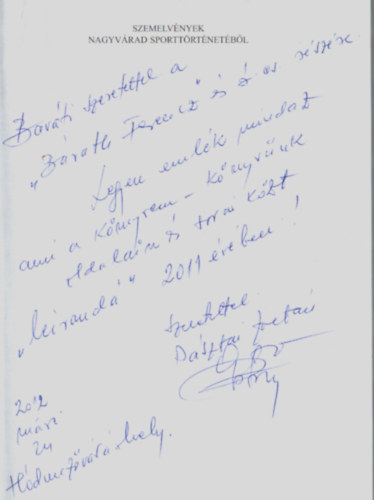 SZEMELVÉNYEK
NAGYVÁRAD SPORTTÖRTÉNETÉBŐL
Baráti szeretettel a
"Baráth Ferenc" és részére
Legyen emlék mindaz
ami a könyvem - könyvünk
oldalain és sorai közt
"leírandó" 2011 évében!
Szeretettel
Dásztai Zoltán
2012
márc.
24
Hódmezővásárhely.